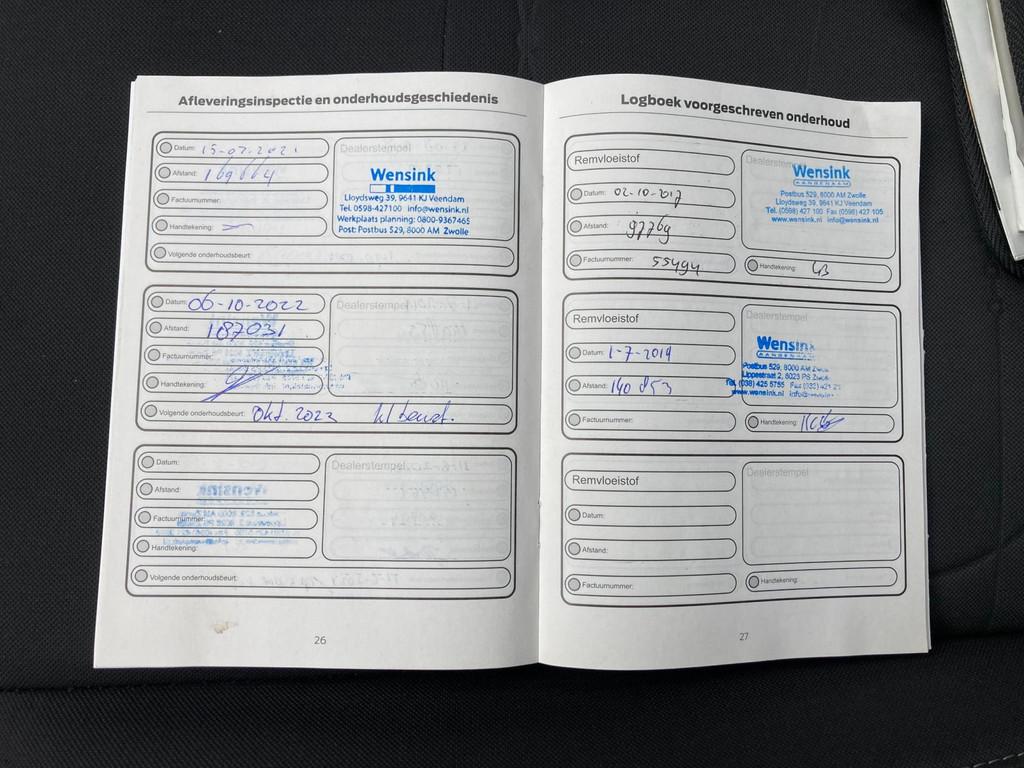 Afleveringsinspectie en onderhoudsgeschiedenis
Datum: 15-07-2021
Afstand: 169664
Factuurnummer:
Handtekening:
Volgende onderhoudsbeurt:
Dealerstempel
Wensink
Lloydsweg 39, 9641 KJ Veendam
Tel. 0598-427100 info@wensink.nl
Werkplaats planning: 0800-9367465
Post: Postbus 529, 8000 AM Zwolle
Datum: 06-10-2022
Afstand: 187031
Factuurnummer:
Handtekening:
Volgende onderhoudsbeurt: Okt. 2023 kl beurt.
Dealerstempel
Datum:
Afstand:
Factuurnummer:
Handtekening:
Volgende onderhoudsbeurt:
Dealerstempel
26
Logboek voorgeschreven onderhoud
Remvloeistof
Datum: 02-10-2017
Afstand: 97769
Factuurnummer: 55494
Dealerstempel
Wensink
AANGENAAM
Postbus 529, 8000 AM Zwolle
Lloydsweg 39, 9641 KJ Veendam
Tel. (0598) 427 100 Fax (0598) 427 105
www.wensink.nl info@wensink.nl
Handtekening:
Remvloeistof
Datum: 1-7-2019
Afstand: 140853
Factuurnummer:
Dealerstempel
Wensink
AANGENAAM
Postbus 529, 8000 AM
Lippestraat 2, 8023 PS
Tel. (038) 425 5755 Fax
www.wensink.nl
Handtekening:
Remvloeistof
Datum:
Afstand:
Factuurnummer:
Dealerstempel
Handtekening:
27